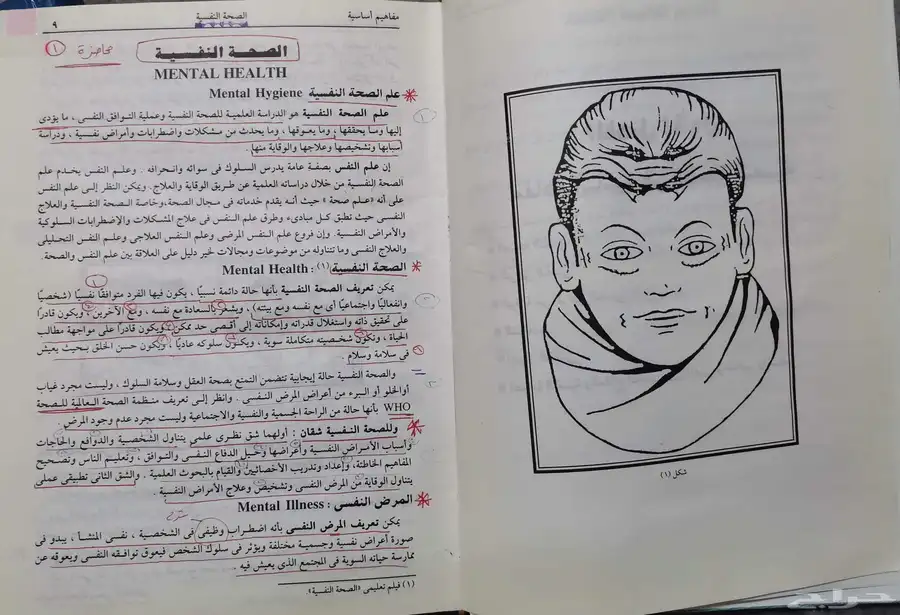 مفاهيم أساسية
الصحة النفسية
٩
محاضرة ١
الصحة النفسية
MENTAL HEALTH
علم الصحة النفسية Mental Hygiene
علم الصحة النفسية هو الدراسة العلمية للصحة النفسية وعملية التوافق النفسى ، ما يؤدى
إليها وما يحققها ، وما يعوقها ، وما يحدث من مشكلات واضطرابات وأمراض نفسية ، ودراسة
أسبابها وتشخيصها وعلاجها والوقاية منها .
إن علم النفس بصفة عامة يدرس السلوك فى سوائه وانحرافه . وعلم النفس يخدم علم
الصحة النفسية من خلال دراساته العلمية عن طريق الوقاية والعلاج . ويمكن النظر إلى علم النفس
على أنه «علم صحة» حيث أنه يقدم خدماته فى مجال الصحة، وخاصة الصحة النفسية والعلاج
النفسى حيث تطبق كل مبادىء وطرق علم النفس فى علاج المشكلات والإضطرابات السلوكية
والأمراض النفسية . وإن فروع علم النفس المرضى وعلم النفس العلاجى وعلم النفس التحليلى
والعلاج النفسى وما تتناوله من موضوعات ومجالات لخير دليل على العلاقة بين علم النفس والصحة
الصحة النفسية (١) : Mental Health
يمكن تعريف الصحة النفسية بأنها حالة دائمة نسبيًا ، يكون فيها الفرد متوافقًا نفسيًا (شخصيًا
وانفعاليًا واجتماعيًا أى مع نفسه ومع بيئته) ، ويشعر بالسعادة مع نفسه ، ومع الآخرين ، ويكون قادرًا
على تحقيق ذاته واستغلال قدراته وإمكاناته إلى أقصى حد ممكن ، ويكون قادرًا على مواجهة مطالب
الحياة ، وتكون شخصيته متكاملة سوية ، ويكون سلوكه عاديًا ، ويكون حسن الخلق بحيث يعيش
فى سلامة وسلام .
والصحة النفسية حالة إيجابية تتضمن التمتع بصحة العقل وسلامة السلوك ، وليست مجرد غياب
أوالخلو أو البرء من أعراض المرض النفسى . وانظر إلى تعريف منظمة الصحة العالمية للصحة
WHO بأنها حالة من الراحة الجسمية والنفسية والاجتماعية وليست مجرد عدم وجود المرض .
وللصحة النفسية شقان : أولهما شق نظرى علمى يتناول الشخصية والدوافع والحاجات
وأسباب الأمراض النفسية وأعراضها وحيل الدفاع النفسى والتوافق ، وتعليم الناس وتصحيح
المفاهيم الخاطئة، وإعداد وتدريب الأخصائيين والقيام بالبحوث العلمية . والشق الثانى تطبيقى عملى
يتناول الوقاية من المرض النفسى وتشخيص وعلاج الأمراض النفسية .
المرض النفسى : Mental Illness
يمكن تعريف المرض النفسى بأنه اضطراب وظيفى فى الشخصية ، نفسى المنشأ ، يبدو فى
صورة أعراض نفسية وجسمية مختلفة ويؤثر فى سلوك الشخص فيعوق توافقه النفسى ويعوقه عن
ممارسة حياته السوية فى المجتمع الذى يعيش فيه .
(١) فيلم تعليمى «الصحة النفسية».
شكل (١)
حراج